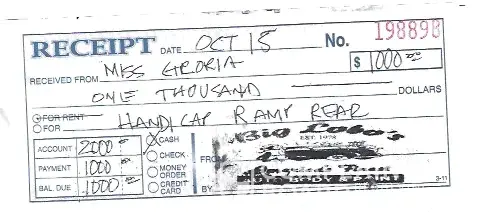 RECEIPT DATE OCT 15 No. 198898
RECEIVED FROM MISS GLORIA $1000 00
ONE THOUSAND DOLLARS
FOR RENT
FOR HANDICAP RAMP REAR
ACCOUNT 2000 00 CASH
CHECK
PAYMENT 1000 00 MONEY ORDER FROM
BAL. DUE 1000 00 CREDIT CARD BY
EST 1978
3-11